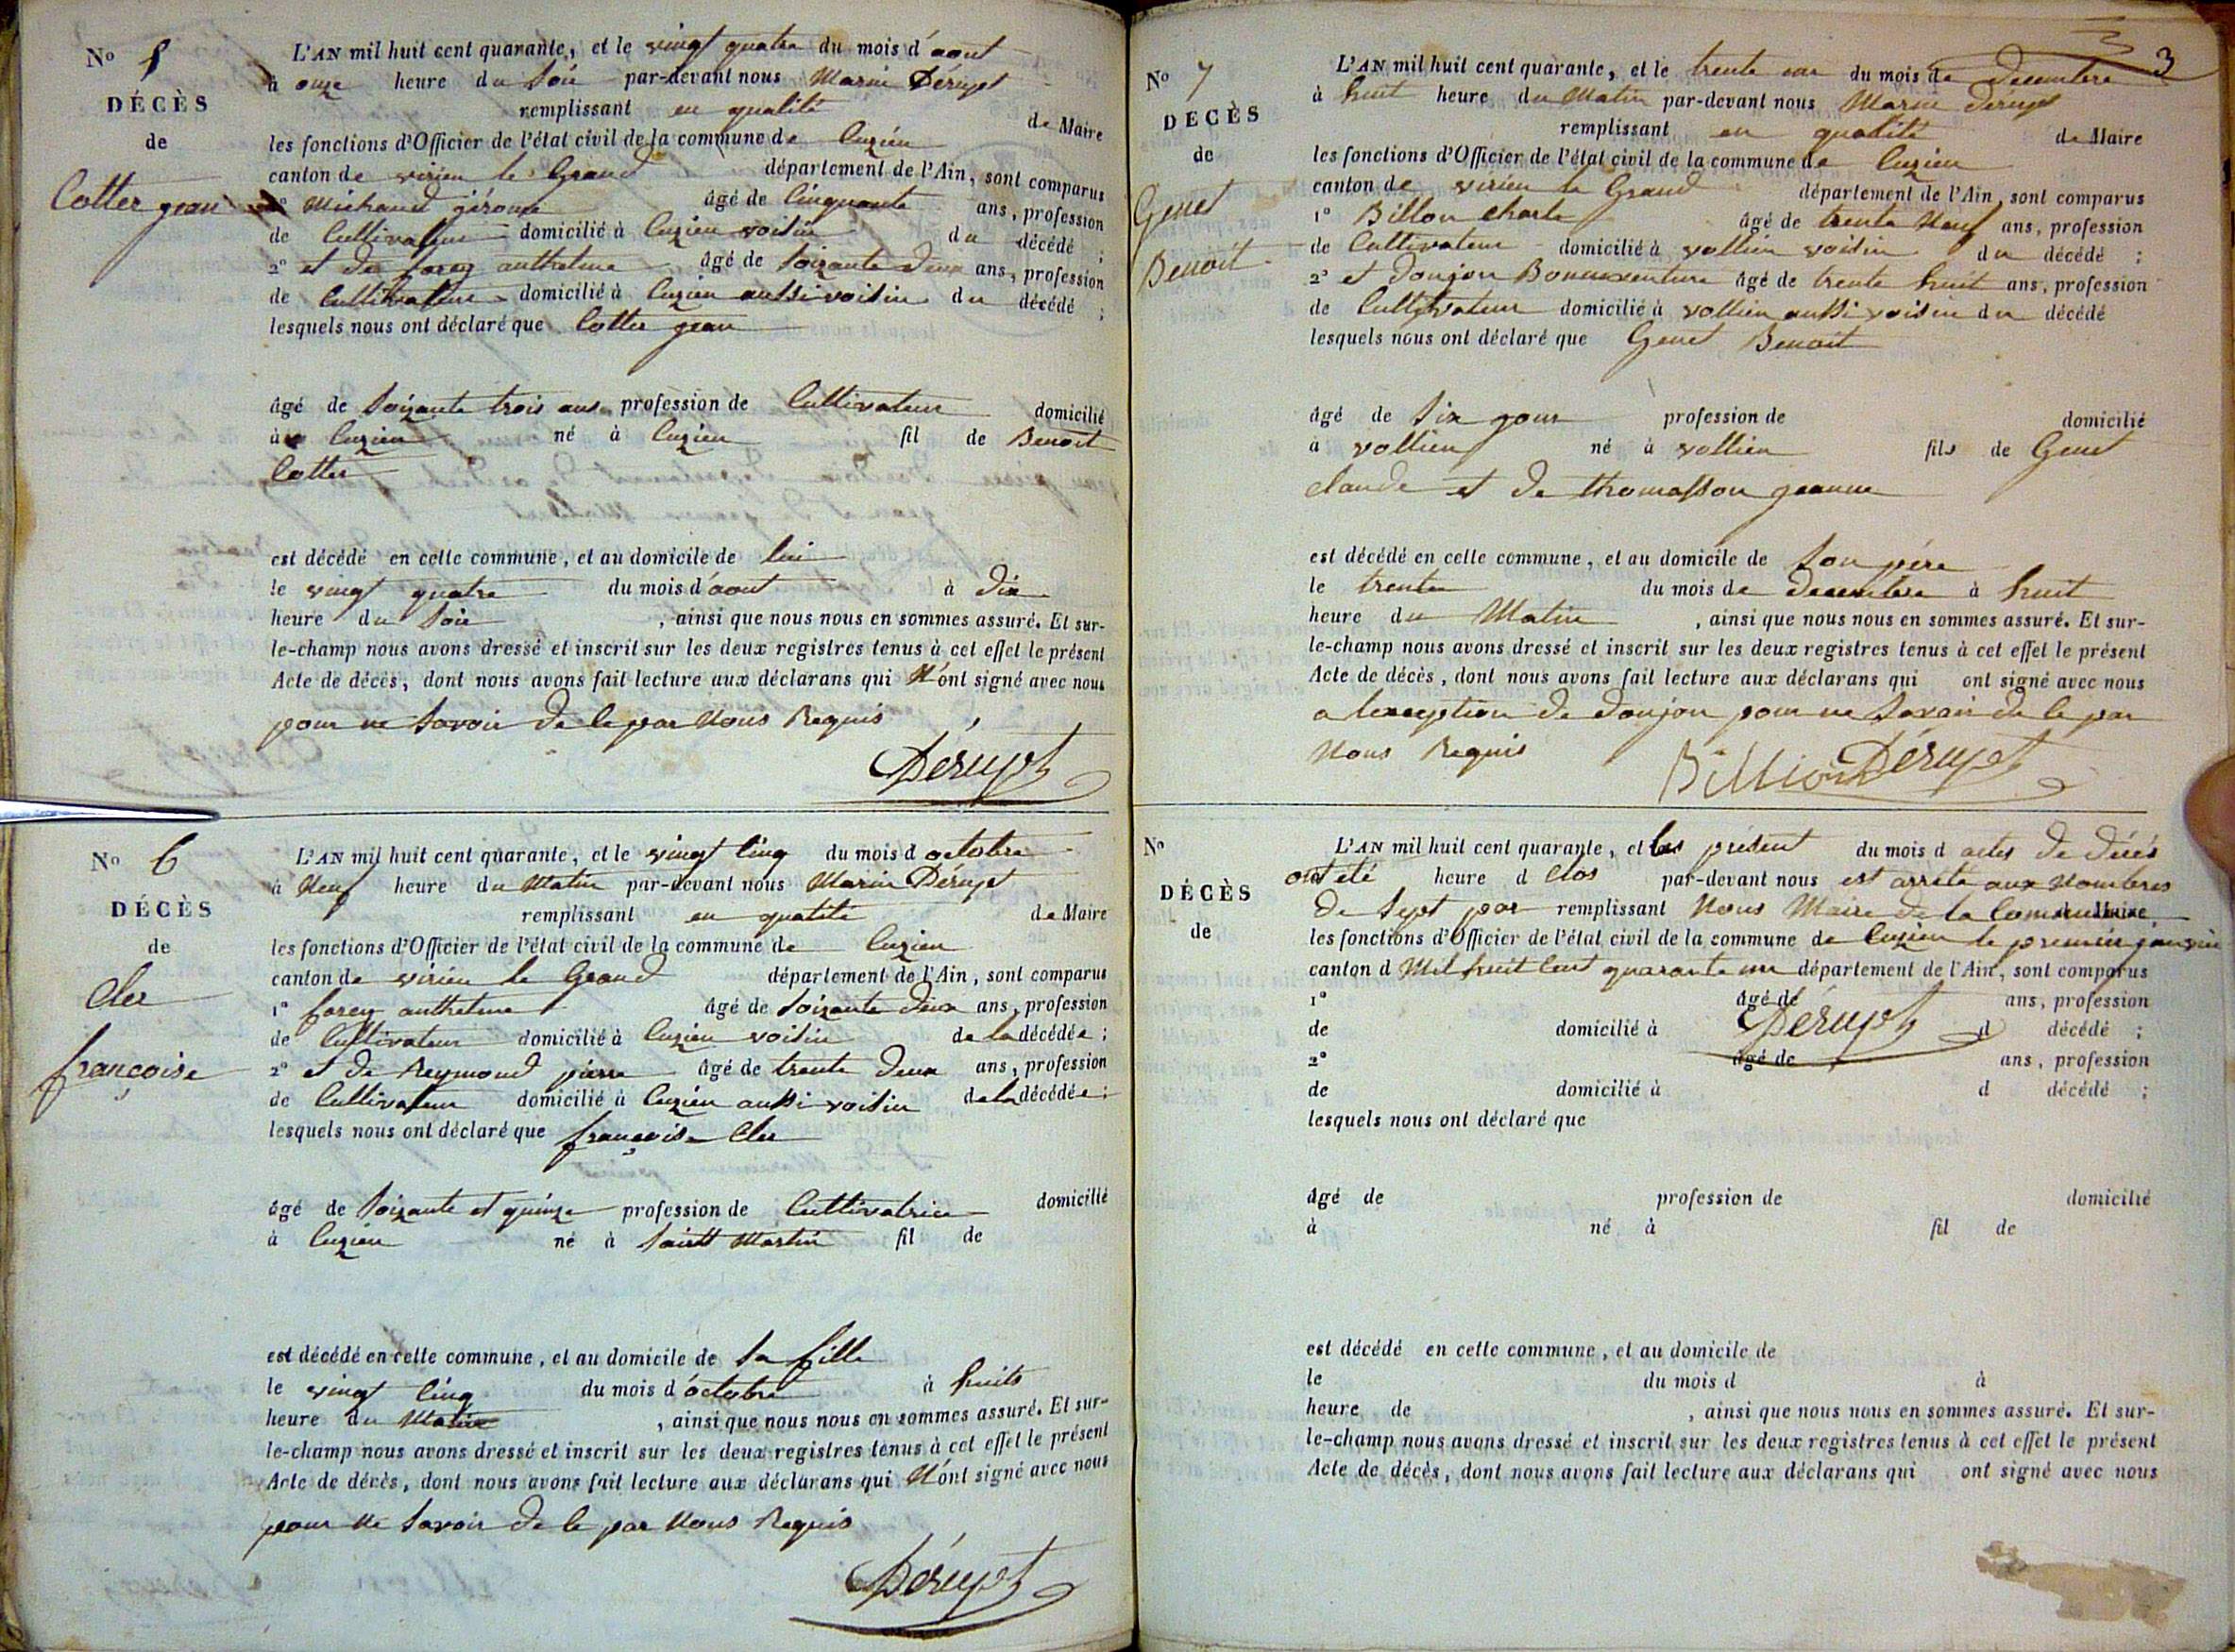 No 5
DÉCÈS
de
Cotter jean
L'AN mil huit cent quarante, et le vingt quatre du mois d'aout
à onze heure du soir par-devant nous Marin Déruget
remplissant en qualité de Maire
les fonctions d'Officier de l'état civil de la commune de Cuzieu
canton de virieu le Grand département de l'Ain, sont comparus
1° Michaud gérome âgé de Cinquante ans, profession
de Cultivateur domicilié à Cuzieu voisin du décédé ;
2° et de forey anthelme âgé de soizante deux ans, profession
de Cultivateur domicilié à Cuzieu aussi voisin du décédé ;
lesquels nous ont déclaré que Cotter jean
âgé de soizante trois ans profession de Cultivateur domicilié
à Cuzieu né à Cuzieu fil de Benoit
Cotter
est décédé en cette commune, et au domicile de lui
le vingt quatre du mois d'aout à dix
heure du soir , ainsi que nous nous en sommes assuré. Et sur-
le-champ nous avons dressé et inscrit sur les deux registres tenus à cet effet le présent
Acte de décès, dont nous avons fait lecture aux déclarans qui N'ont signé avec nous
pour ne savoir de le par Nous Requis
Déruget
No 6
DÉCÈS
de
Cler
françoise
L'AN mil huit cent quarante, et le vingt cinq du mois d octobre
à Neuf heure du Matin par-devant nous Marin Déruget
remplissant en qualité de Maire
les fonctions d'Officier de l'état civil de la commune de Cuzieu
canton de virieu le Grand département de l'Ain, sont comparus
1° forey anthelme âgé de soizante deux ans, profession
de Cultivateur domicilié à Cuzieu voisin de la décédée ;
2° et de Reymond pierre âgé de trente deux ans, profession
de Cultivateur domicilié à Cuzieu aussi voisin de la décédée ;
lesquels nous ont déclaré que françoise Cler
âgé de soizante et quinze profession de Cultivatrice domicilié
à Cuzieu né à saint Martin fil de
est décédé en cette commune, et au domicile de sa fille
le vingt cinq du mois d'octobre à huits
heure du Matin , ainsi que nous nous en sommes assuré. Et sur-
le-champ nous avons dressé et inscrit sur les deux registres tenus à cet effet le présent
Acte de décès, dont nous avons fait lecture aux déclarans qui N'ont signé avec nous
pour ne savoir de le par Nous Requis
Déruget
3
No 7
DÉCÈS
de
Genet
Benoit
L'AN mil huit cent quarante, et le trente un du mois de decembre
à huit heure du Matin par-devant nous Marin Déruget
remplissant en qualité de Maire
les fonctions d'Officier de l'état civil de la commune de Cuzieu
canton de virieu le Grand département de l'Ain, sont comparus
1° Billon charle âgé de trente Neuf ans, profession
de Cultivateur domicilié à vollien voisin du décédé ;
2° et doujon Bonnaventure âgé de trente huit ans, profession
de Cultivateur domicilié à vollien aussi voisin du décédé
lesquels nous ont déclaré que Genet Benoit
âgé de six jour profession de domicilié
à vollien né à vollien fils de Genet
claude et de thomasson jeanne
est décédé en cette commune, et au domicile de son père
le trente du mois de decembre à huit
heure du Matin , ainsi que nous nous en sommes assuré. Et sur-
le-champ nous avons dressé et inscrit sur les deux registres tenus à cet effet le présent
Acte de décès, dont nous avons fait lecture aux déclarans qui ont signé avec nous
a lexception de doujon pour ne savoir de le par
Nous Requis
Billion Déruget
No
DÉCÈS
de
L'AN mil huit cent quarante, et les présent du mois d actes de décés
ont été heure d clos par-devant nous est arreté aux Nombres
de sept par remplissant Nous Maire de la Commune de Maire
les fonctions d'Officier de l'état civil de la commune de Cuzieu le premier janvier
canton d Mil huit Cent quarante un département de l'Ain, sont comparus
1° âgé de ans, profession
de domicilié à Déruget d décédé ;
2° âgé de ans, profession
de domicilié à d décédé ;
lesquels nous ont déclaré que
âgé de profession de domicilié
à né à fil de
est décédé en cette commune, et au domicile de
le du mois d à
heure de , ainsi que nous nous en sommes assuré. Et sur-
le-champ nous avons dressé et inscrit sur les deux registres tenus à cet effet le présent
Acte de décès, dont nous avons fait lecture aux déclarans qui ont signé avec nous